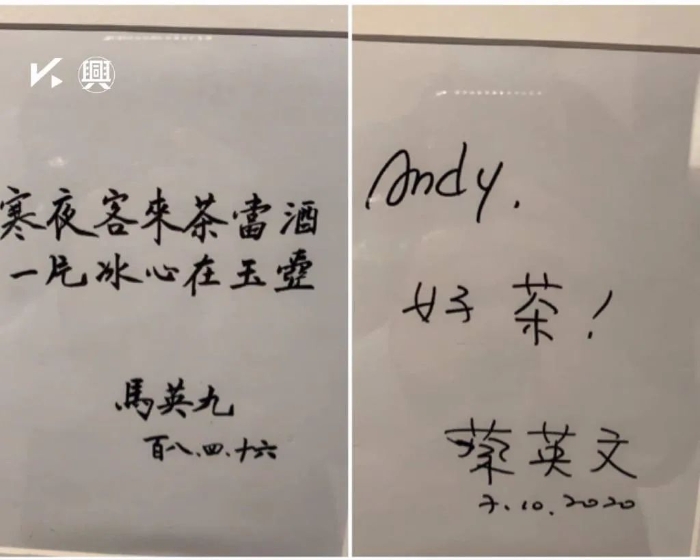 K 興
寒夜客來茶當酒
一片冰心在玉壺
馬英九
百八.四.十六
Andy.
好茶!
蔡英文
7.10.2020